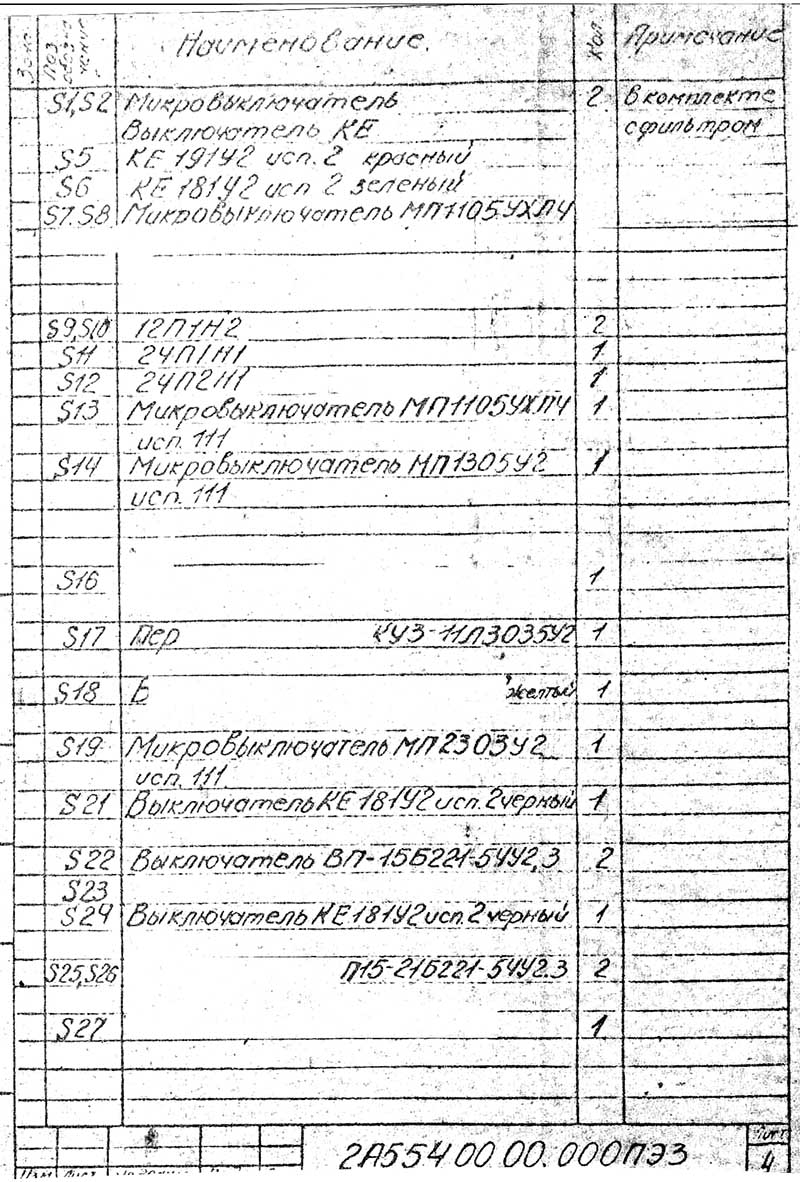 Зона Поз. обозначение Наименование. Кол Примечание
S1,S2 Микровыключатель 2 В комплекте
Выключатель КЕ с фильтром
S5 КЕ 191У2 исп. 2 красный
S6 КЕ 181У2 исп 2 зеленый
S7.S8 Микровыключатель МП1105УХЛ4
S9,S10 12П1Н2 2
S11 24П1Н1 1
S12 24П2Н1 1
S13 Микровыключатель МП1105УХЛ4 1
исп. 111
S14 Микровыключатель МП1305У2 1
исп. 111
S16 1
S17 Пер КУ3-11Л3035У2 1
S18 В желтый 1
S19 Микровыключатель МП2303У2 1
исп. 111
S21 Выключатель КЕ 181У2 исп. 2 черный 1
S22 Выключатель ВП-15Б221-54У2,3 2
S23
S24 Выключатель КЕ 181У2 исп. 2 черный 1
S25,S26 П15-21Б221-54У2.3 2
S27 1
2А554.00.00.000ПЭ3 Лист
Изм Лист 4